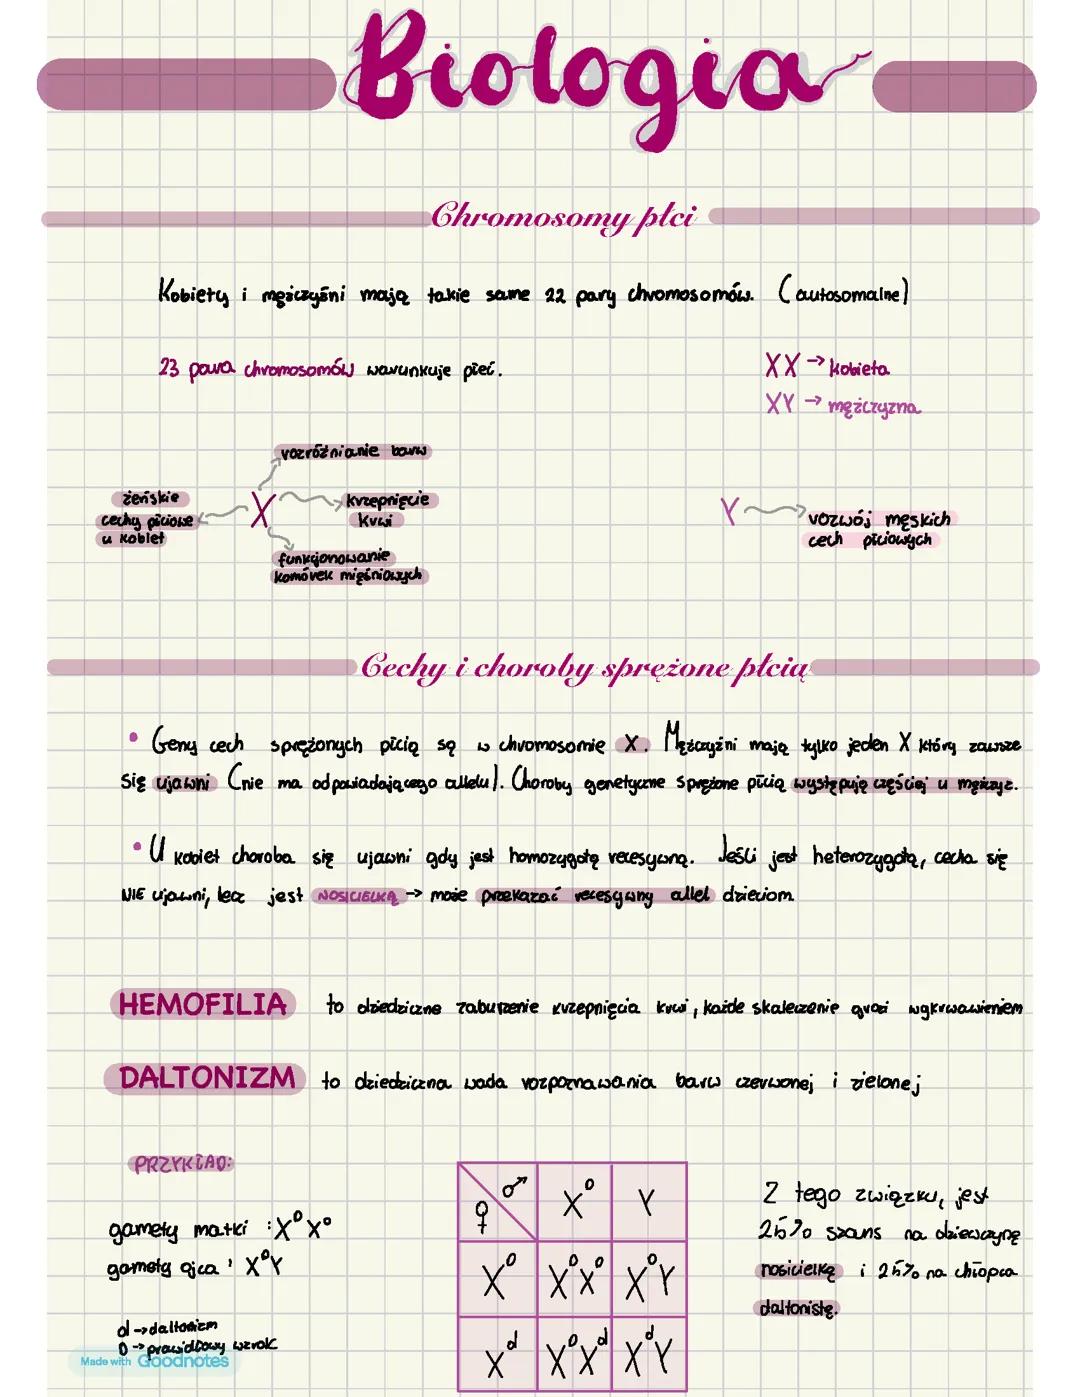 Biologia
Chromosomy płci
Kobiety i mężczyźni mają takie same 22 pary chromosomów. (autosomalne)
23 para chromosomów warunkuje płeć.
XX → kobieta
XY → mężczyzna
rozróżnianie barw
żeńskie
cechy płciowe
u kobiet
X
krzepnięcie
krwi
funkcjonowanie
komórek mięśniowych
Y
rozwój męskich
cech płciowych
Cechy i choroby sprężone płcią
• Geny cech sprężonych płcią są w chromosomie X. Mężczyźni mają tylko jeden X który zawsze
się ujawni (nie ma odpowiadającego allelu). Choroby genetyczne sprężone płcią występują częściej u mężczyz.
• U kobiet choroba się ujawni gdy jest homozygotą recesywną. Jeśli jest heterozygotą, cecha się
NIE ujawni, lecz jest NOSICIELKĄ → może przekazać recesywny allel dzieciom
HEMOFILIA to dziedziczne zaburzenie krzepnięcia krwi, każde skaleczenie grozi wykrwawieniem
DALTONIZM to dziedziczna wada rozpoznawania barw czerwonej i zielonej
PRZYKŁAD:
gamety matki : X^D X^D
gamety ojca : X^D Y
d → daltonizm
D → prawidłowy wzrok
Made with Goodnotes
♀ ♂ X^D Y
X^D X^D X^D X^D Y
X^d X^D X^d X^d Y
Z tego związku, jest
25% szans na dziewczynę
nosicielkę i 25% na chłopca
daltonistę.